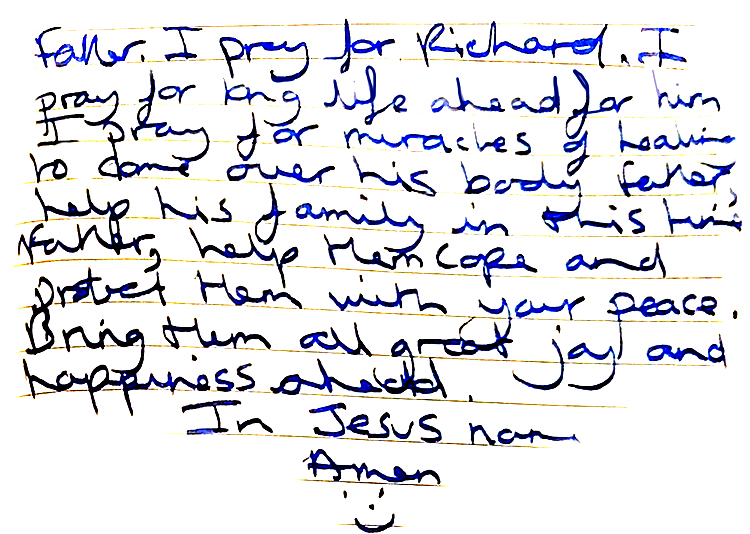 Father. I pray for Richard. I
pray for long life ahead for him
I pray for miracles of healing
to come over his body father,
help his family in this time
father, help them cope and
protect them with your peace.
Bring them all great joy and
happiness ahead.
In Jesus name
Amen